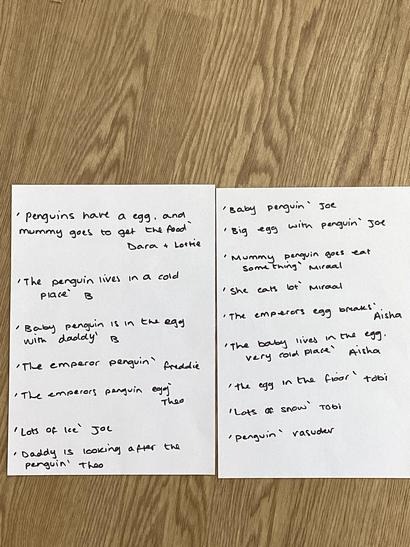 'Penguins have a egg, and
mummy goes to get the food'
Dara + Lottie
'The penguin lives in a cold
place' B
'Baby penguin is in the egg
with daddy' B
'The emperor penguin' Freddie
'The emperors penguin egg'
Theo
'Lots of Ice' Joe
'Daddy is looking after the
penguin' Theo
'Baby penguin' Joe
'Big egg with penguin' Joe
'Mummy penguin goes eat
something' Miraal
'She eats lot' Miraal
'The emperors egg breaks'
Aisha
'The baby lives in the egg.
very cold place' Aisha
'the egg in the floor' Tobi
'Lots of snow' Tobi
'penguin' Vasudev